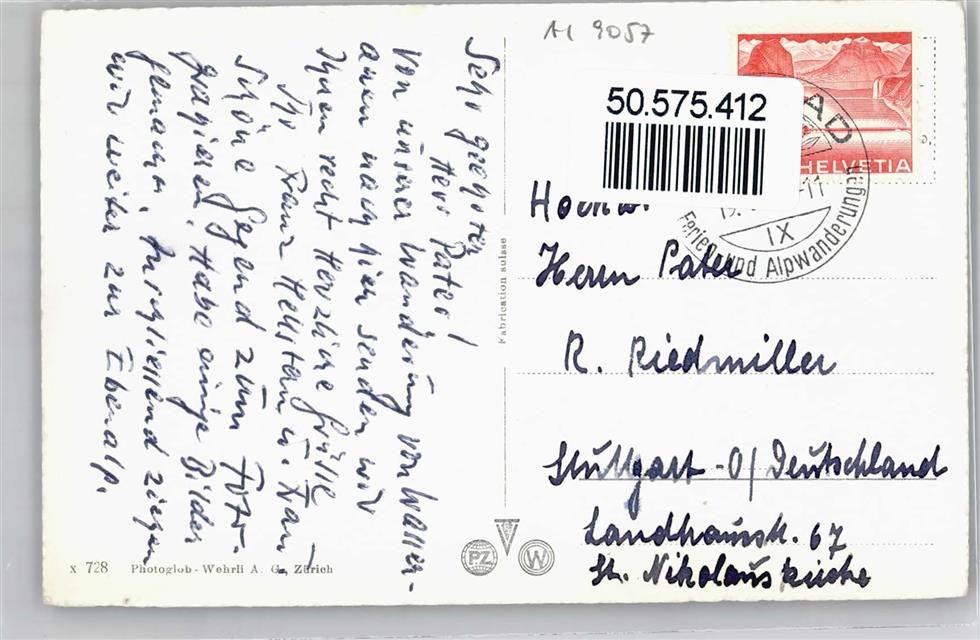 AI 9057
50.575.412
AD
HELVETIA
IX
Ferien und Alpwanderungen
Sehr geehrter
Herr Pater!
Von unserer Wanderung von Wasser-
auen nach hier senden wir
Ihnen recht herzliche Grüße
Ihr Franz Hellstern u. Frau
Schöne Gegend zum Foto-
grafieren. Habe einige Bilder
gemacht. Anschliessend ziehen
wir weiter zur Ebenalp.
Fabrication suisse
Hochw.
Herrn Pater
R. Riedmiller
Stuttgart-O/Deutschland
Landhausstr. 67
St. Nikolauskirche
PZ
W
x 728 Photoglob-Wehrli A. G., Zürich